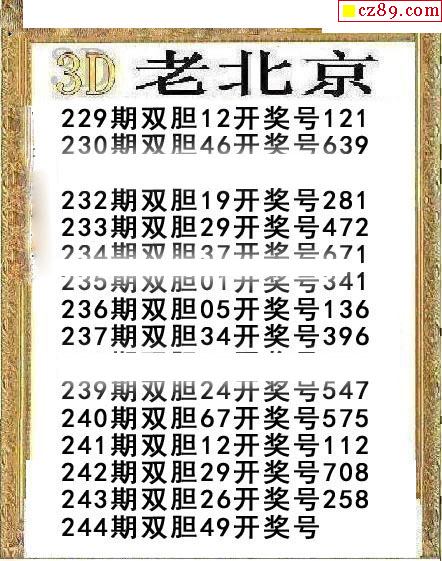 cz89.com
3D 老北京
229期双胆12开奖号121
230期双胆46开奖号639
232期双胆19开奖号281
233期双胆29开奖号472
234期双胆37开奖号671
235期双胆01开奖号341
236期双胆05开奖号136
237期双胆34开奖号396
239期双胆24开奖号547
240期双胆67开奖号575
241期双胆12开奖号112
242期双胆29开奖号708
243期双胆26开奖号258
244期双胆49开奖号